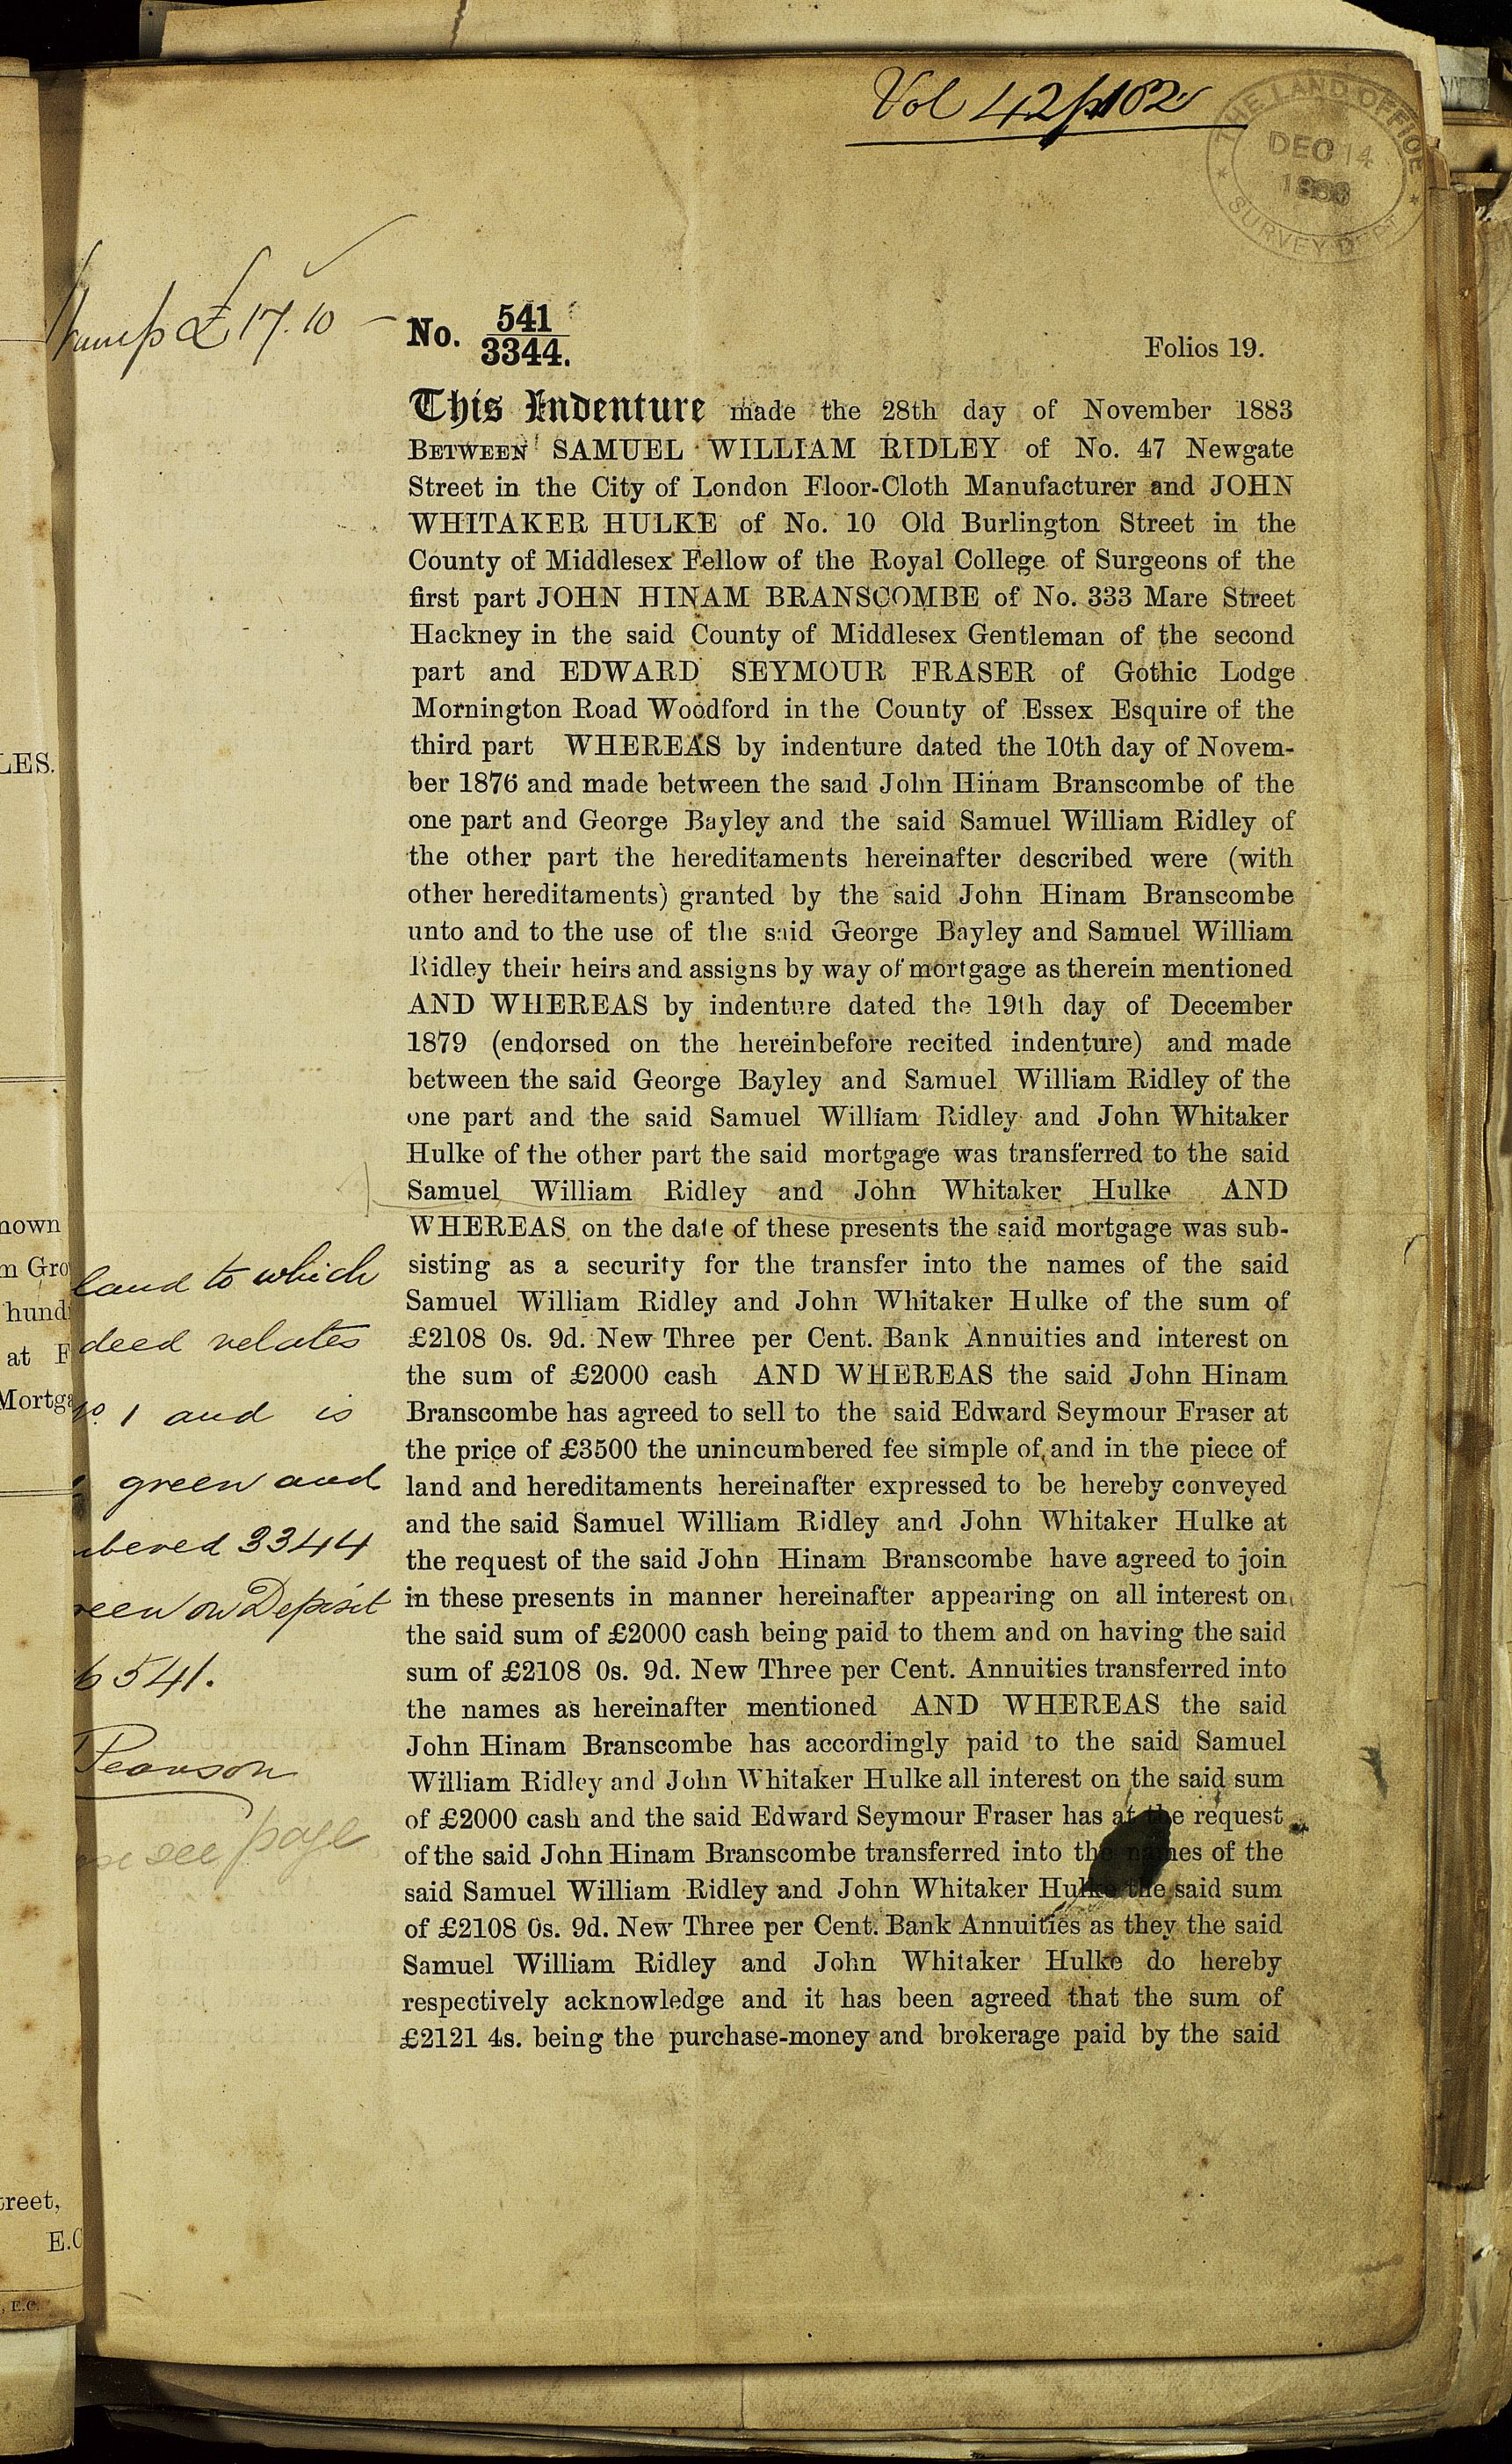 Vol 42 p102
THE LAND OFFICE
DEC 14
SURVEY DEPT
£17.10
No. 541
3344.
Folios 19.
This Indenture made the 28th day of November 1883
BETWEEN SAMUEL WILLIAM RIDLEY of No. 47 Newgate
Street in the City of London Floor-Cloth Manufacturer and JOHN
WHITAKER HULKE of No. 10 Old Burlington Street in the
County of Middlesex Fellow of the Royal College of Surgeons of the
first part JOHN HINAM BRANSCOMBE of No. 333 Mare Street
Hackney in the said County of Middlesex Gentleman of the second
part and EDWARD SEYMOUR FRASER of Gothic Lodge
Mornington Road Woodford in the County of Essex Esquire of the
third part WHEREAS by indenture dated the 10th day of Novem-
ber 1876 and made between the said John Hinam Branscombe of the
one part and George Bayley and the said Samuel William Ridley of
the other part the hereditaments hereinafter described were (with
other hereditaments) granted by the said John Hinam Branscombe
unto and to the use of the said George Bayley and Samuel William
Ridley their heirs and assigns by way of mortgage as therein mentioned
AND WHEREAS by indenture dated the 19th day of December
1879 (endorsed on the hereinbefore recited indenture) and made
between the said George Bayley and Samuel William Ridley of the
one part and the said Samuel William Ridley and John Whitaker
Hulke of the other part the said mortgage was transferred to the said
Samuel William Ridley and John Whitaker Hulke AND
WHEREAS on the date of these presents the said mortgage was sub-
sisting as a security for the transfer into the names of the said
Samuel William Ridley and John Whitaker Hulke of the sum of
£2108 0s. 9d. New Three per Cent. Bank Annuities and interest on
the sum of £2000 cash AND WHEREAS the said John Hinam
Branscombe has agreed to sell to the said Edward Seymour Fraser at
the price of £3500 the unincumbered fee simple of and in the piece of
land and hereditaments hereinafter expressed to be hereby conveyed
and the said Samuel William Ridley and John Whitaker Hulke at
the request of the said John Hinam Branscombe have agreed to join
in these presents in manner hereinafter appearing on all interest on
the said sum of £2000 cash being paid to them and on having the said
sum of £2108 0s. 9d. New Three per Cent. Annuities transferred into
the names as hereinafter mentioned AND WHEREAS the said
John Hinam Branscombe has accordingly paid to the said Samuel
William Ridley and John Whitaker Hulke all interest on the said sum
of £2000 cash and the said Edward Seymour Fraser has at the request
of the said John Hinam Branscombe transferred into the names of the
said Samuel William Ridley and John Whitaker Hulke the said sum
of £2108 0s. 9d. New Three per Cent. Bank Annuities as they the said
Samuel William Ridley and John Whitaker Hulke do hereby
respectively acknowledge and it has been agreed that the sum of
£2121 4s. being the purchase-money and brokerage paid by the said
land to which
deed relates
1 and is
green and
3344
on Deposit
541.
Pearson
see page
LES.
at
E.C.